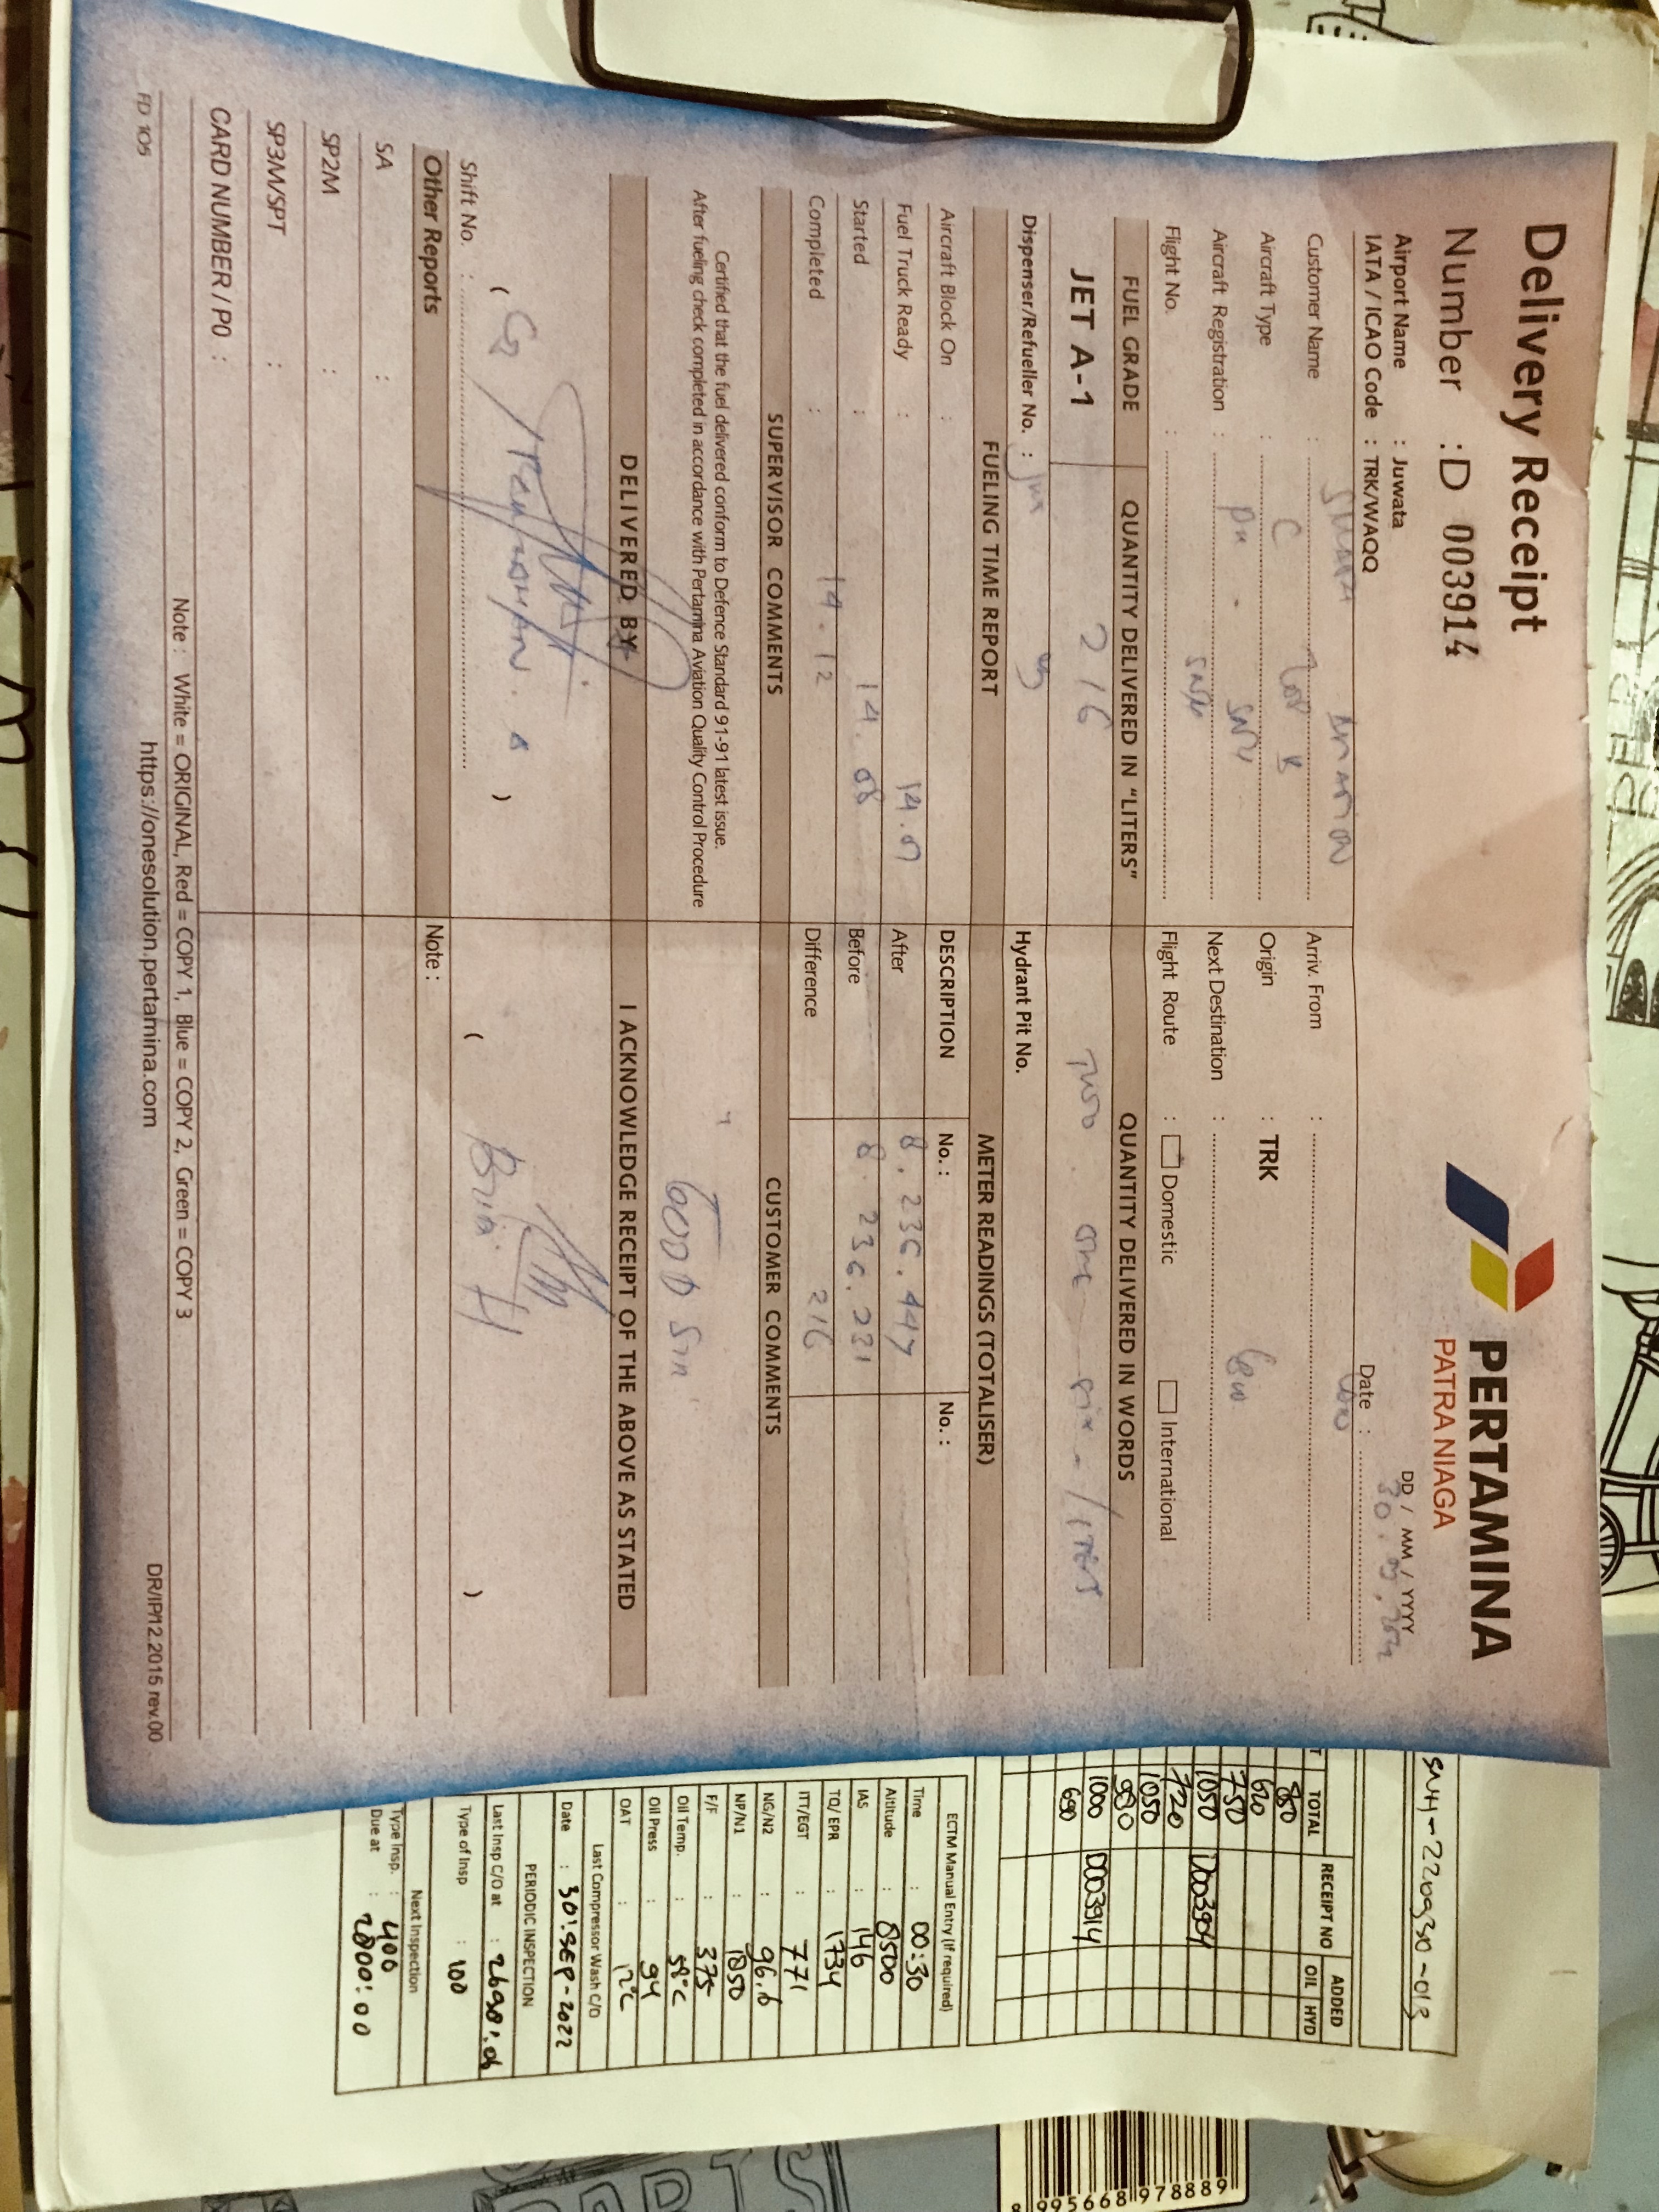 Delivery Receipt
Number : D 003914
PERTAMINA
PATRA NIAGA
Airport Name : Juwata
IATA / ICAO Code : TRK/WAQQ
DD / MM / YYYY
Date :
Customer Name :
Arriv. From :
Aircraft Type : C 208 B
Origin : TRK
Aircraft Registration : PK . SNN
Next Destination :
Flight No. :
Flight Route : Domestic International
FUEL GRADE QUANTITY DELIVERED IN "LITERS" QUANTITY DELIVERED IN WORDS
JET A-1 216 TWO . one - six - liters
Dispenser/Refueller No. :
Hydrant Pit No.
FUELING TIME REPORT METER READINGS (TOTALISER)
Aircraft Block On :
DESCRIPTION No. : No. :
Fuel Truck Ready : 14.07
After 8.236.447
Started : 14.08
Before 8.236.231
Completed : 14.12
Difference 216
SUPERVISOR COMMENTS CUSTOMER COMMENTS
Certified that the fuel delivered conform to Defence Standard 91-91 latest issue.
After fueling check completed in accordance with Pertamina Aviation Quality Control Procedure
GOOD
DELIVERED BY I ACKNOWLEDGE RECEIPT OF THE ABOVE AS STATED
( )
( )
Shift No. :
Other Reports Note :
SA :
SP2M :
SP3M/SPT :
CARD NUMBER / PO :
Note : White = ORIGINAL, Red = COPY 1, Blue = COPY 2, Green = COPY 3
FD 105 https://onesolution.pertamina.com DR/IP/12.2015 rev.00
SNH-220930-013
TOTAL RECEIPT NO ADDED
OIL HYD
880
620
750
1050 D003904
720
1050
980
1000 D003914
690
ECTM Manual Entry (If required)
Time : 00:30
Altitude : 8500
IAS : 146
TQ/ EPR : 1734
ITT/EGT : 771
NG/N2 : 96.6
NP/N1 : 1850
F/F : 375
Oil Temp. : 58°C
Oil Press : 94
OAT : 12°C
Last Compressor Wash C/O
Date : 30-SEP-2022
PERIODIC INSPECTION
Last Insp C/O at : 2698:06
Type of Insp : 100
Next Inspection
Type Insp. : 400
Due at : 2800:00
8 995668 978889